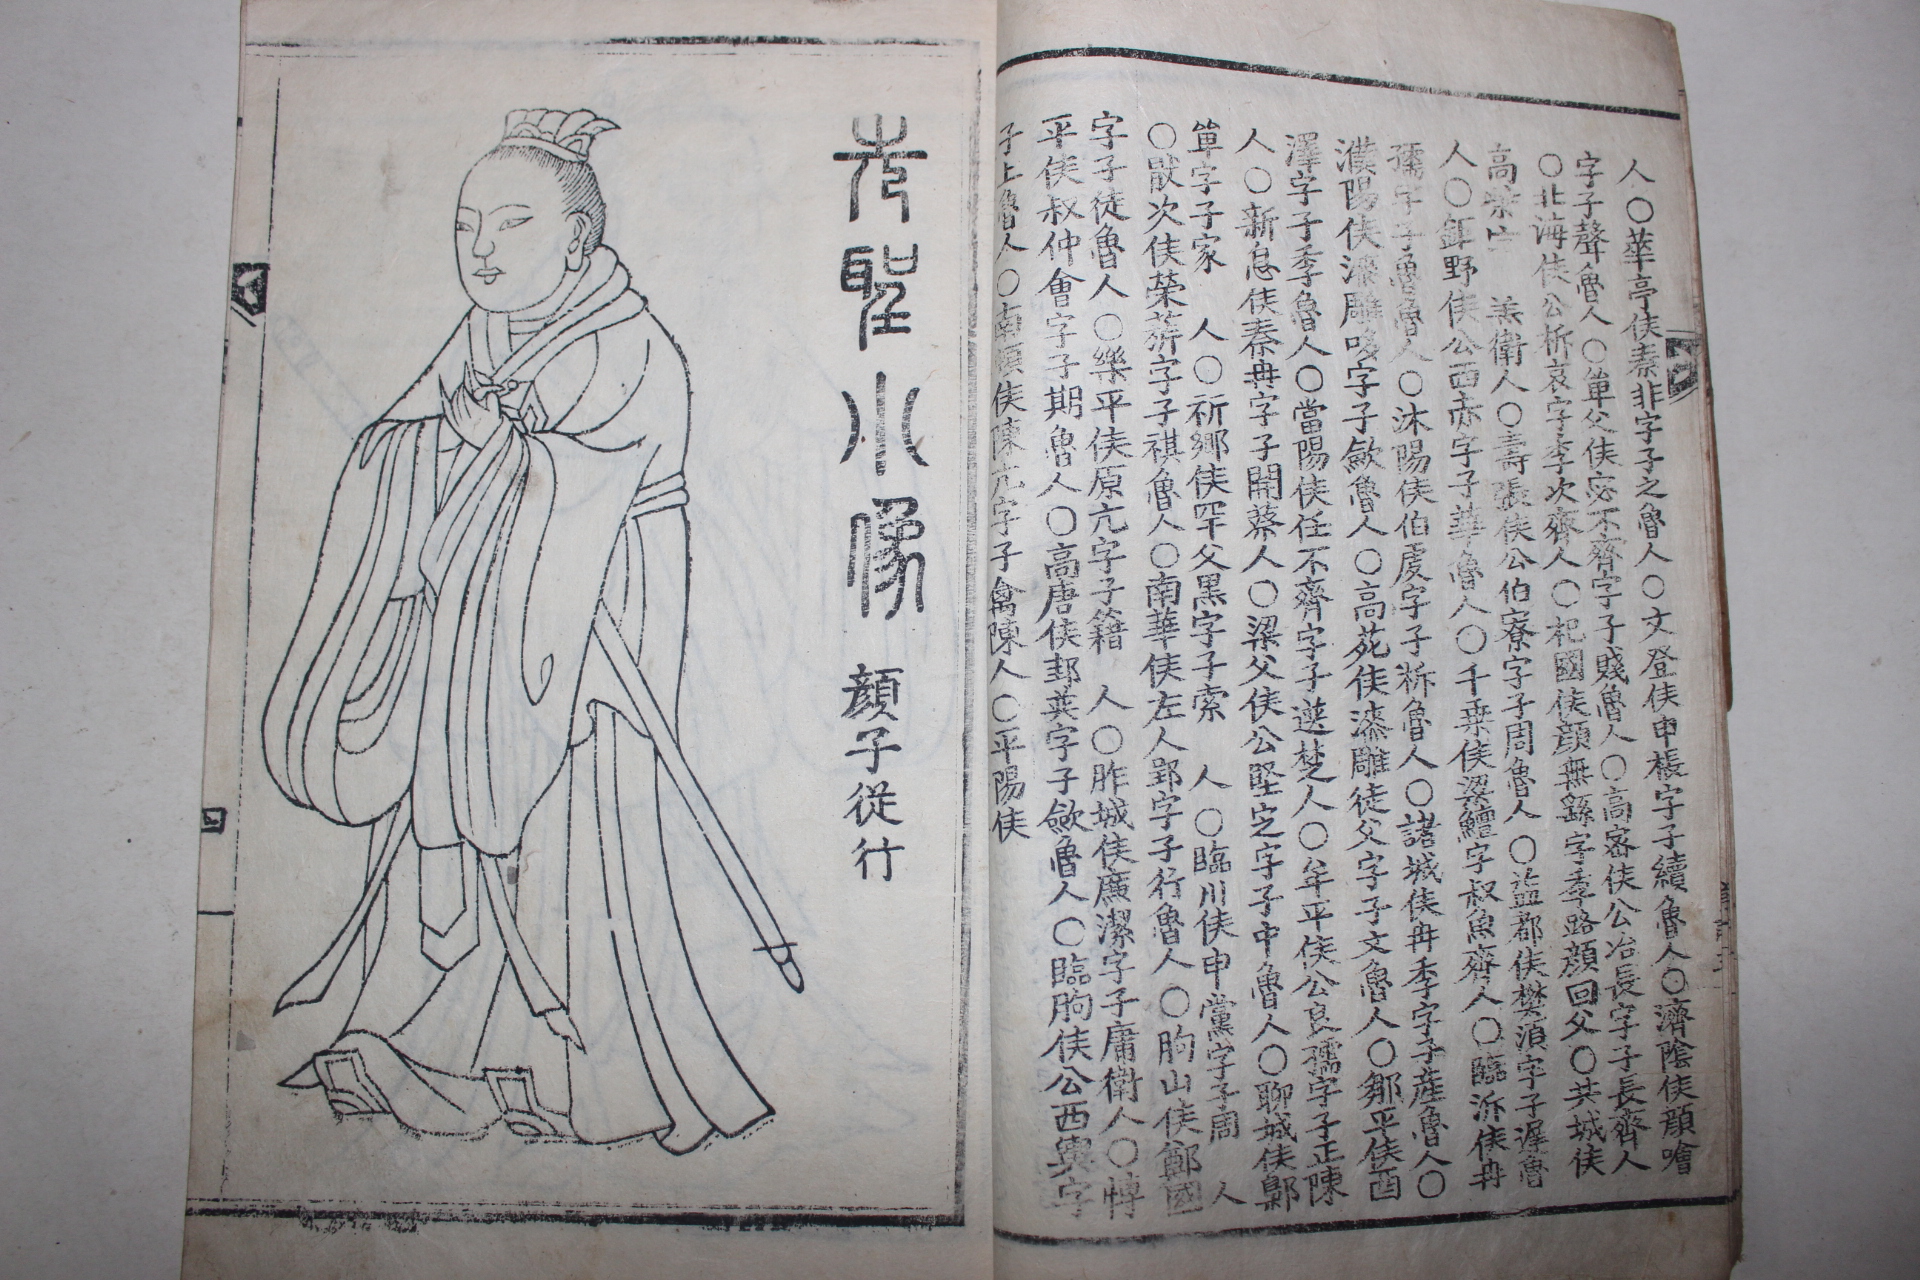 人〇華亭侯秦非字子之魯人〇文登侯申棖字子續魯人〇濟陰侯顔噲
字子聲魯人〇單父侯宓不齊字子賤魯人〇高密侯公冶長字子長齊人
〇北海侯公析哀字季次齊人〇杞國侯顔無繇字季路顔回父〇共城侯
高柴字 羔衛人〇壽張侯公伯寮字子周魯人〇益都侯樊湏字子遲魯
人〇鉅野侯公西赤字子華魯人〇千乗侯梁鱣字叔魚齊人〇臨沂侯冉
孺字子魯魯人〇沐陽侯伯虔字子析魯人〇諸城侯冉季字子産魯人〇
濮陽侯漆雕哆字子歛魯人〇高苑侯漆雕徒父字子文魯人〇鄒平侯酉
澤字子季魯人〇當陽侯任不齊字子選楚人〇牟平侯公良孺字子正陳
人〇新息侯秦冉字子開蔡人〇梁父侯公堅定字子中魯人〇聊城侯鄡
單字子家 人〇祈鄉侯罕父黑字子索 人〇臨川侯申黨字子周 人
〇猒次侯榮旂字子祺魯人〇南華侯左人郢字子行魯人〇朐山侯鄭國
字子徒魯人〇樂平侯原亢字子籍 人〇胙城侯廉潔字子庸衛人〇愽
平侯叔仲會字子期魯人〇高唐侯邽巽字子歛魯人〇臨朐侯公西輿字
子上魯人〇南頓侯陳亢字子禽陳人〇平陽侯
先聖小像 顔子從行
四